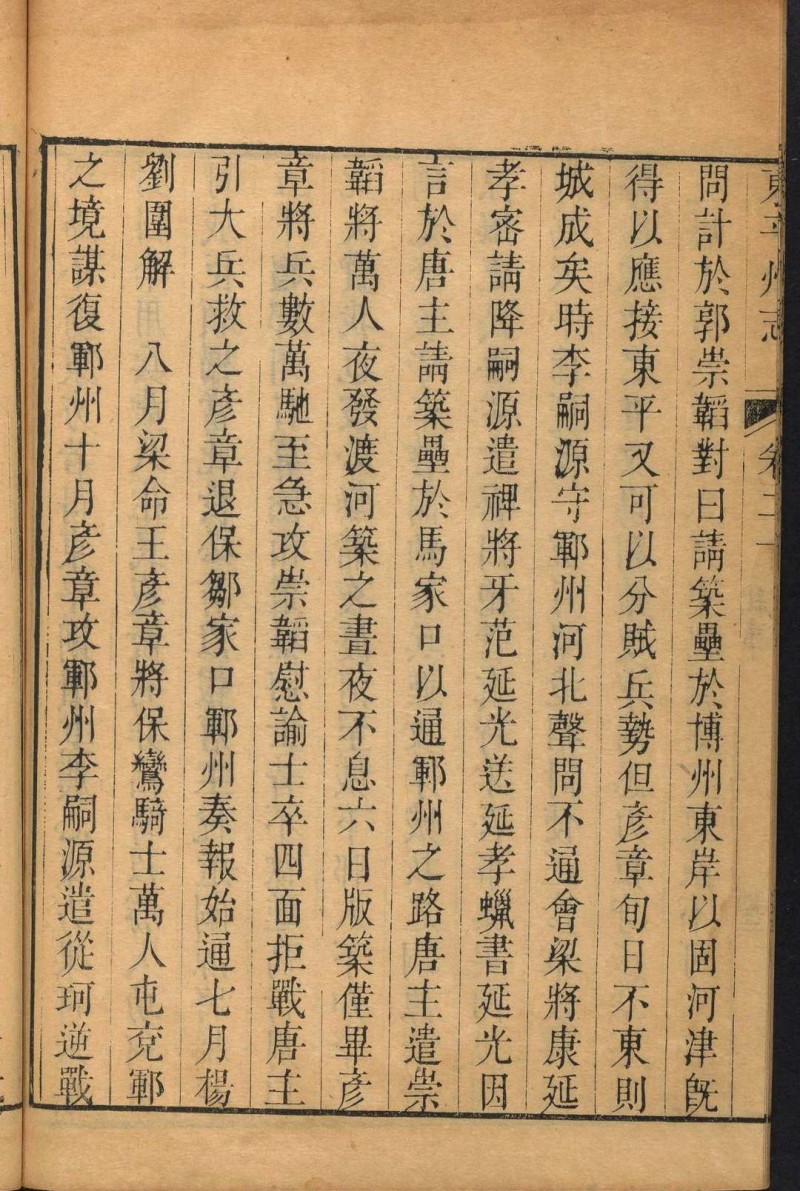 東平州志 卷二十
問計於郭崇韜對曰請築壘於博州東岸以固河津既
得以應接東平又可以分賊兵勢但彥章旬日不東則
城成矣時李嗣源守鄆州河北聲問不通會梁將康延
孝密請降嗣源遣禆將牙范延光送延孝蠟書延光因
言於唐主請築壘於馬家口以通鄆州之路唐主遣崇
韜將萬人夜發渡河築之晝夜不息六日版築僅畢彥
章將兵數萬馳至急攻崇韜慰諭士卒四面拒戰唐主
引大兵救之彥章退保鄒家口鄆州奏報始通七月楊
劉圍解 八月梁命王彥章將保鸞騎士萬人屯兗鄆
之境謀復鄆州十月彥章攻鄆州李嗣源遣從珂逆戰